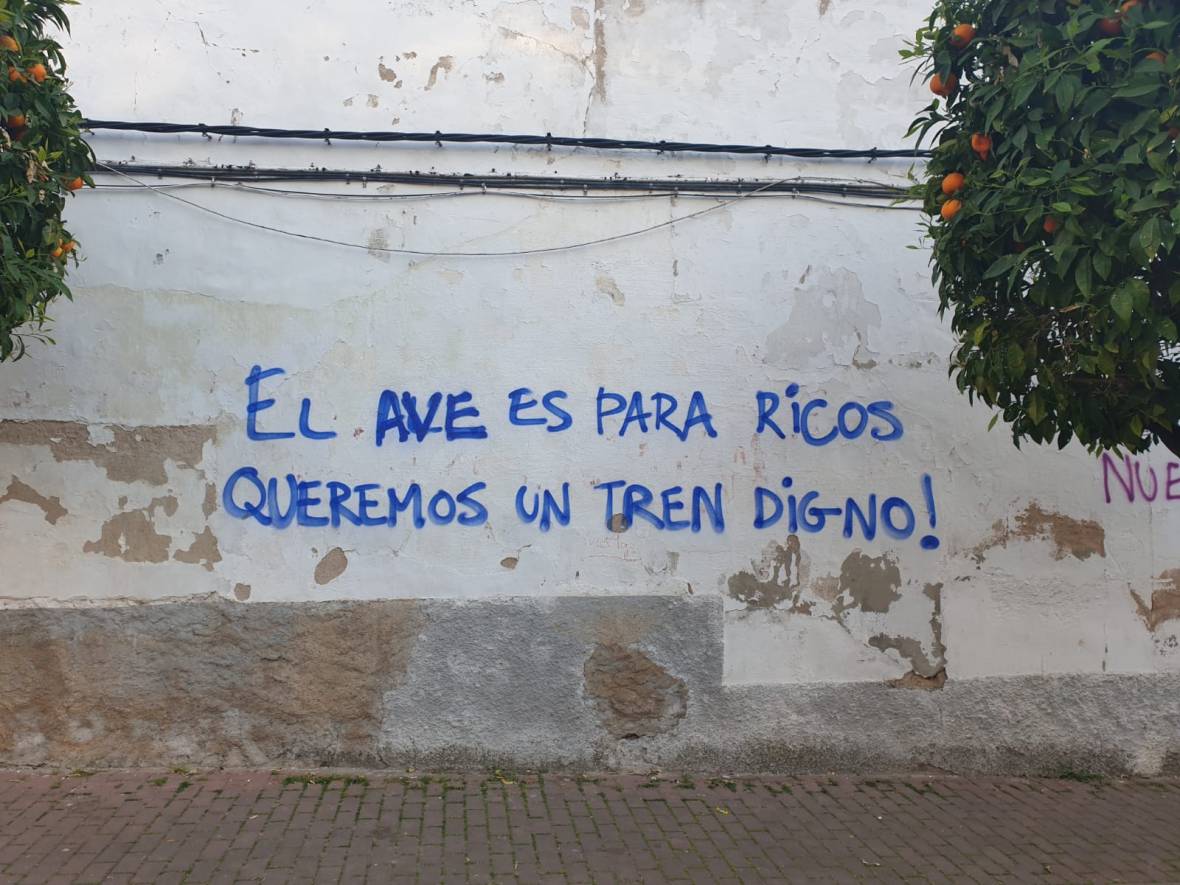 EL AVE ES PARA RiCOS
QUEREMOS UN TREN DiGNO!
NUE